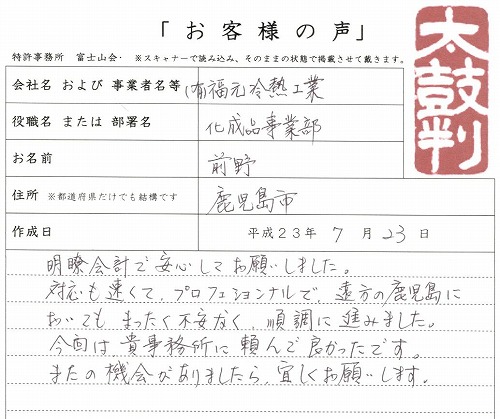 「お客様の声」
特許事務所 富士山会・ ※スキャナーで読み込み、そのままの状態で掲載させて戴きます。
太鼓判
会社名 および 事業者名等 (有)福元冷熱工業
役職名 または 部署名 化成品事業部
お名前 前野
住所 ※都道府県だけでも結構です 鹿児島市
作成日 平成23年 7 月 23 日
明瞭会計で安心してお願いしました。
対応も速くて、プロフェショナルで、遠方の鹿児島に
おいてもまったく不安なく、順調に進みました。
今回は貴事務所に頼んで良かったです。
またの機会がありましたら、宜しくお願いします。